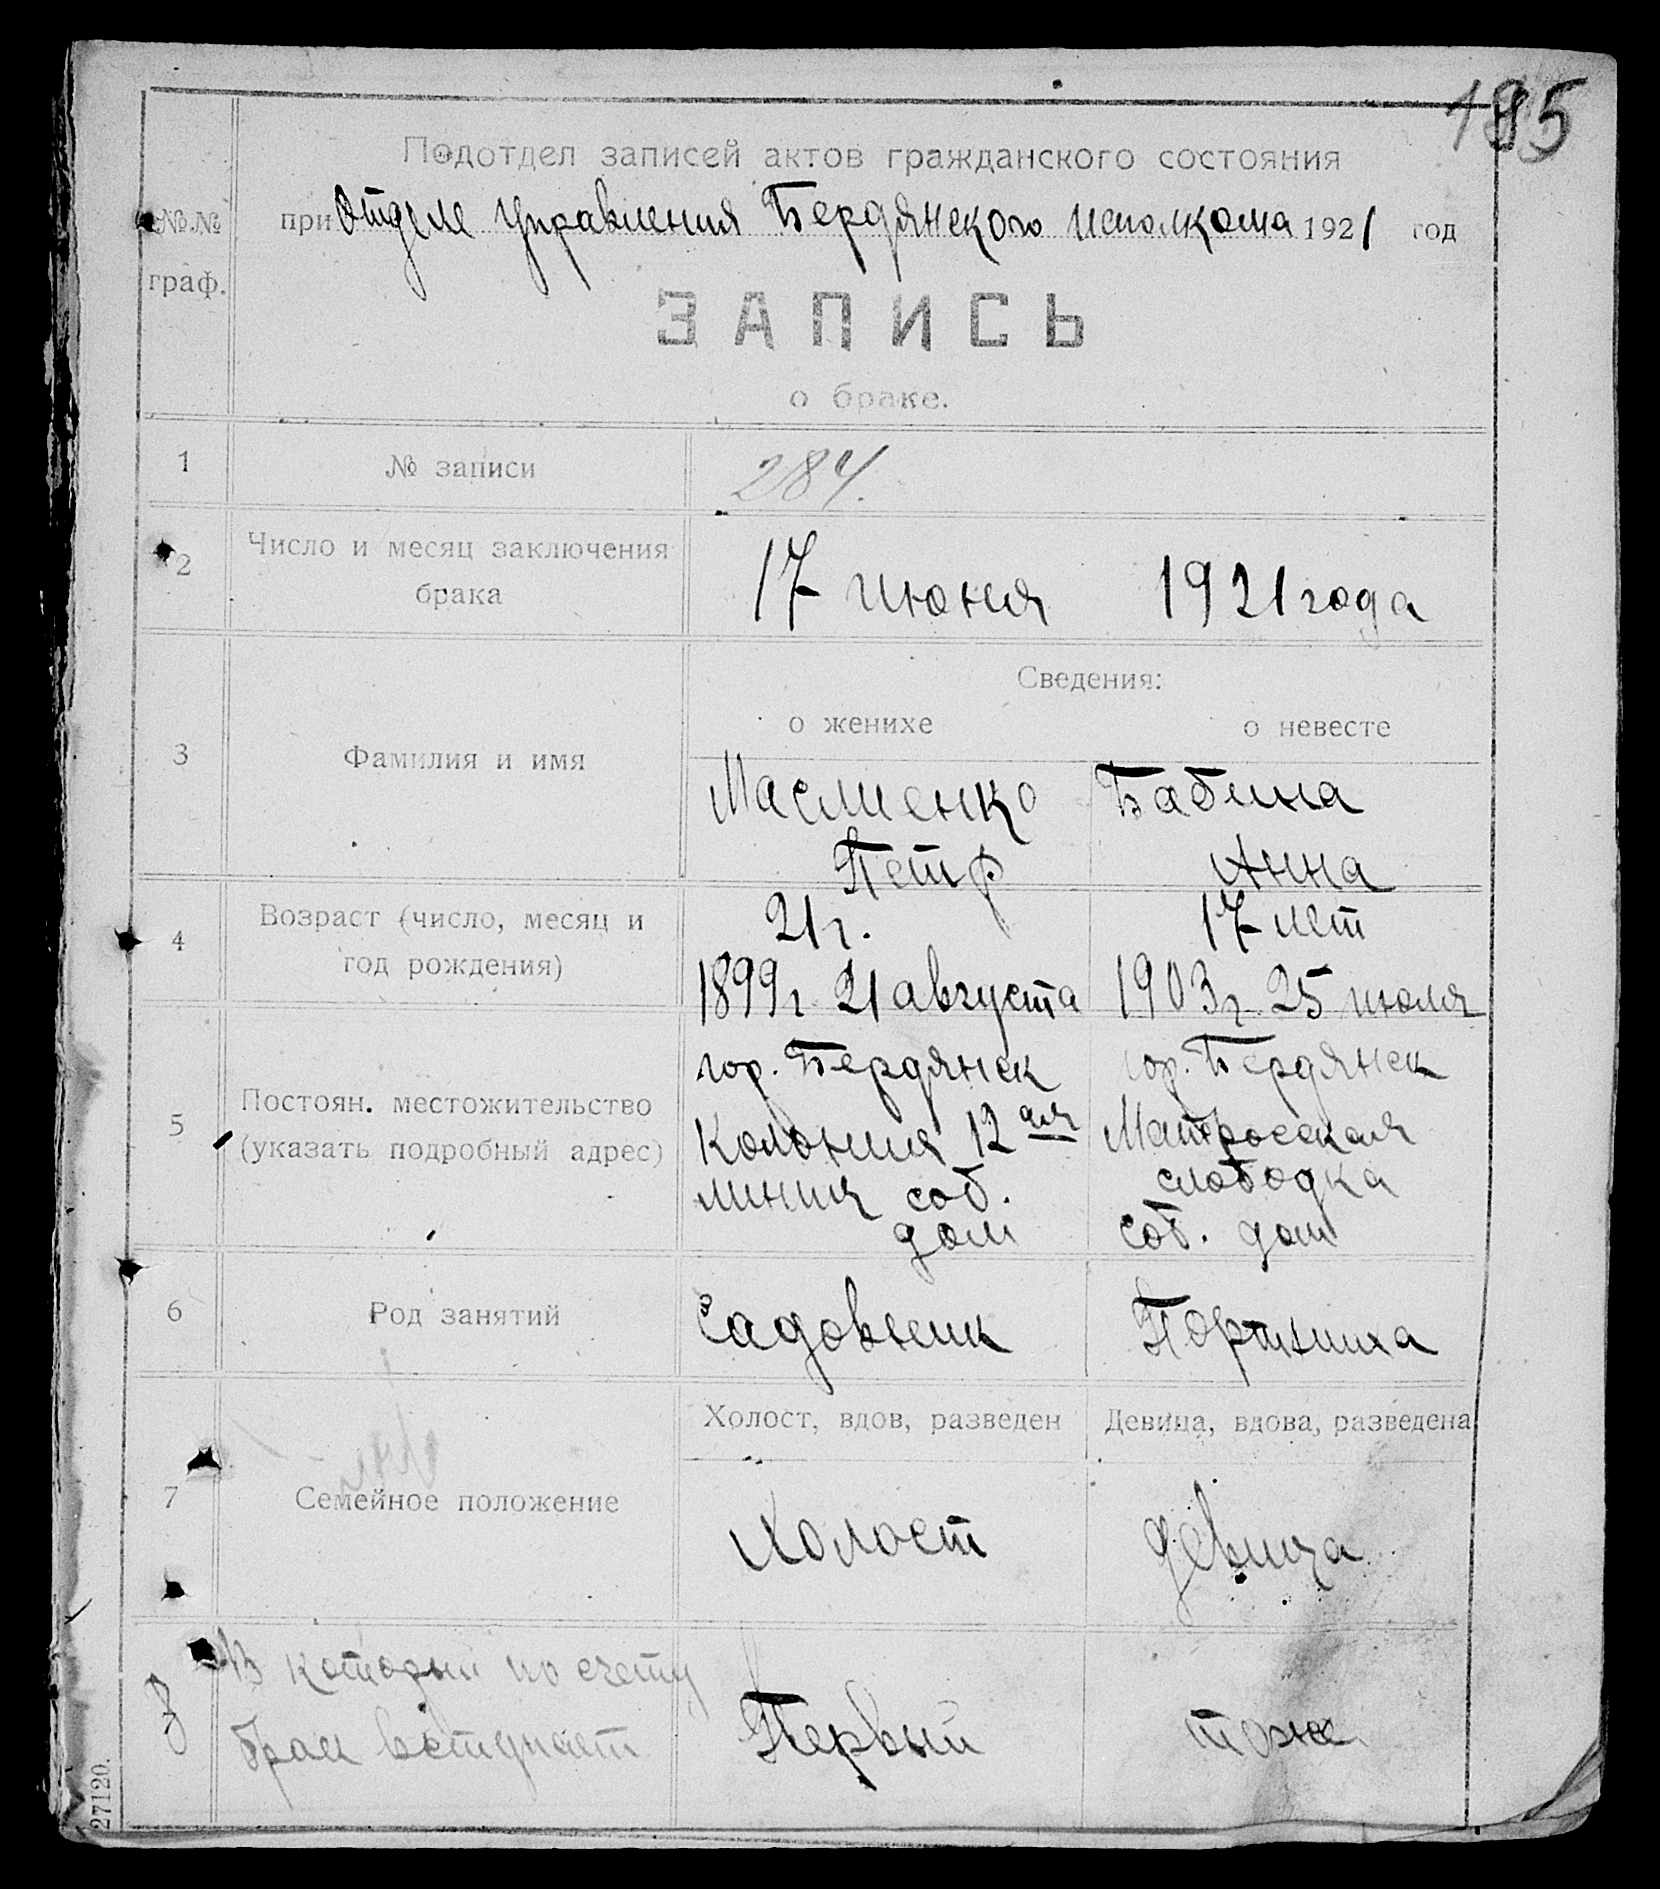 195
Подотдел записей актов гражданского состояния
№№ граф.
при Отделе Управления Бердянского Исполкома 1921 год
ЗАПИСЬ
о браке.
1 № записи 284.
2 Число и месяц заключения брака 17 июня 1921 года
Сведения:
о женихе о невесте
3 Фамилия и имя
Маслиенко Бабина
Петр Анна
4 Возраст (число, месяц и год рождения)
21 г. 17 лет
1899 г 21 августа 1903 г. 25 июля
5 Постоян. местожительство (указать подробный адрес)
гор. Бердянск гор. Бердянск
Колония 12 ая Матросская
линия соб. слободка
дом соб. дом
6 Род занятий Садовник Портниха
Холост, вдов, разведен Девица, вдова, разведена
7 Семейное положение Холост девица
8 В который по счету
брак вступает Первый тоже
27120.